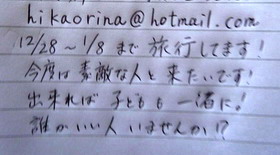 hikaorina@hotmail.com
12/28～1/8まで旅行してます!
今度は素敵な人と来たいです!
出来れば子どもも一緒に!
誰かいい人いませんか!?